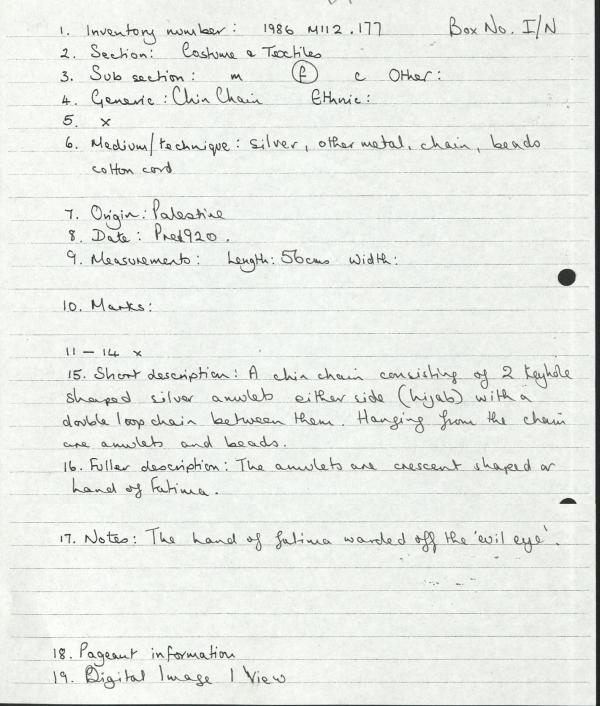 1. Inventory number: 1986 M112.177 Box No. I/N
2. Section: Costume & Textiles
3. Sub section: m f c Other:
4. Generic: Chin Chain Ethnic:
5. x
6. Medium/technique: silver, other metal, chain, beads
cotton cord
7. Origin: Palestine
8. Date: Pre1920.
9. Measurements: Length: 56cms Width:
10. Marks:
11 – 14 x
15. Short description: A chin chain consisting of 2 keyhole
shaped silver amulets either side (hijab) with a
double loop chain between them. Hanging from the chain
are amulets and beads.
16. Fuller description: The amulets are crescent shaped or
hand of Fatima.
17. Notes: The hand of fatima warded off the 'evil eye'.
18. Pageant information
19. Digital Image 1 View